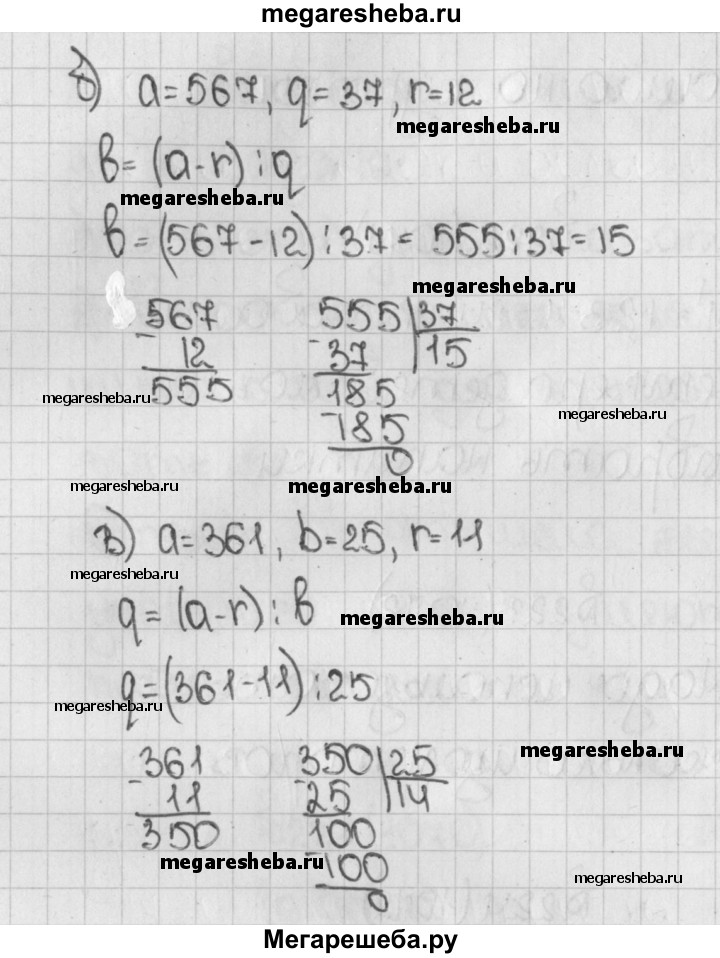 megaresheba.ru
б) a=567, q=37, r=12
megaresheba.ru
b=(a-r):q
megaresheba.ru
b=(567-12):37=555:37=15
megaresheba.ru
-567 555|37
12 -37 |15
555 185
megaresheba.ru
megaresheba.ru
-185
0
megaresheba.ru megaresheba.ru megaresheba.ru
в) a=361, b=25, r=11
megaresheba.ru
q=(a-r):b
megaresheba.ru
q=(361-11):25
megaresheba.ru
megaresheba.ru
-361 350|25
11 -25 |14
350 100
megaresheba.ru
-100
megaresheba.ru
0
Мегарешеба.ру